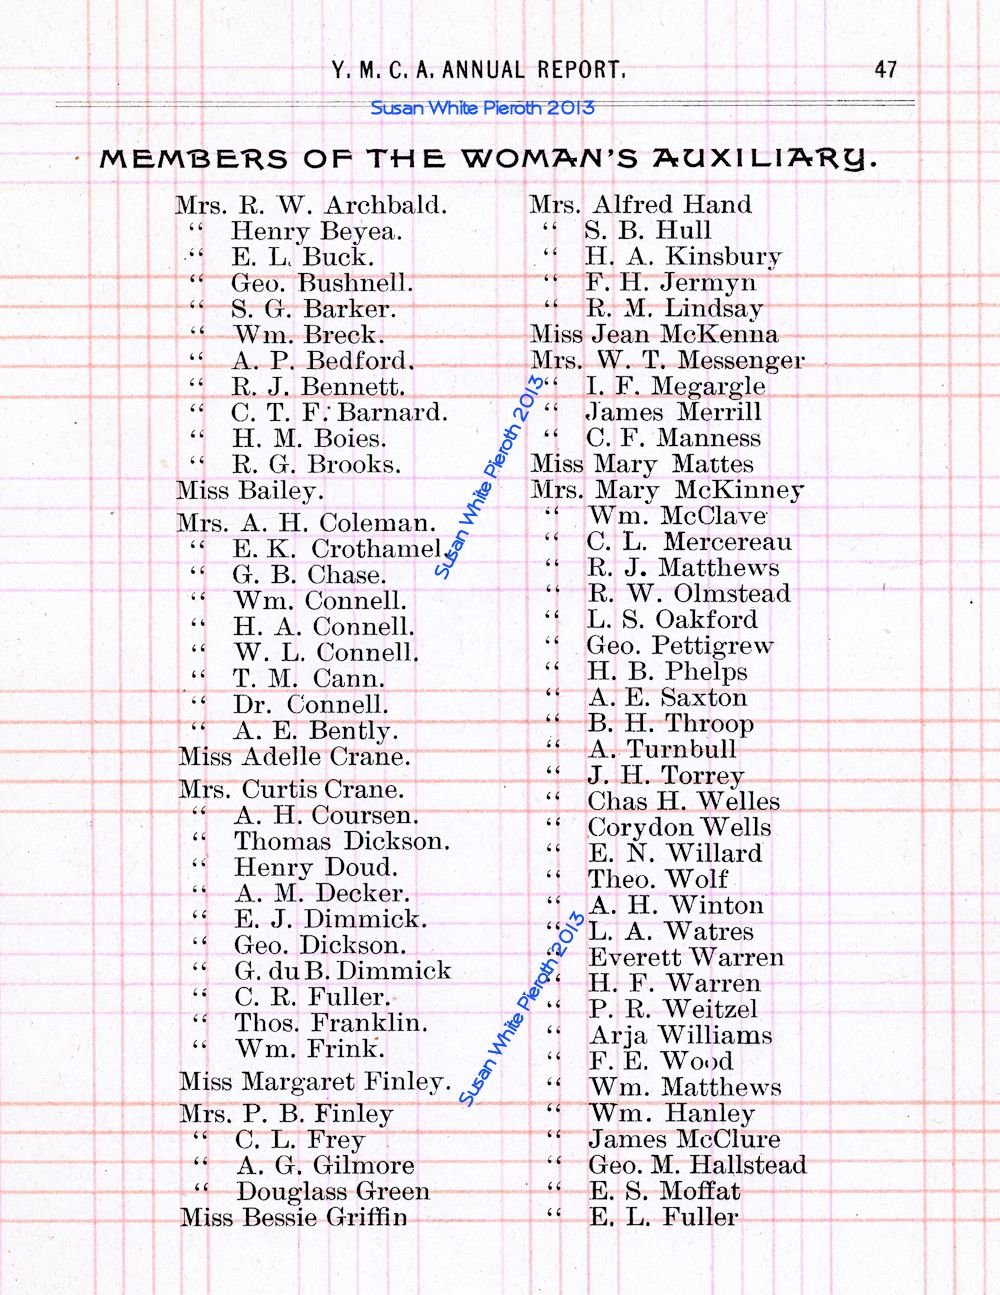 Y. M. C. A. ANNUAL REPORT. 47
Susan White Pieroth 2013
MEMBERS OF THE WOMAN'S AUXILIARY.
Mrs. R. W. Archbald.
“ Henry Beyea.
“ E. L. Buck.
“ Geo. Bushnell.
“ S. G. Barker.
“ Wm. Breck.
“ A. P. Bedford.
“ R. J. Bennett.
“ C. T. F. Barnard.
“ H. M. Boies.
“ R. G. Brooks.
Miss Bailey.
Mrs. A. H. Coleman.
“ E. K. Crothamel.
“ G. B. Chase.
“ Wm. Connell.
“ H. A. Connell.
“ W. L. Connell.
“ T. M. Cann.
“ Dr. Connell.
“ A. E. Bently.
Miss Adelle Crane.
Mrs. Curtis Crane.
“ A. H. Coursen.
“ Thomas Dickson.
“ Henry Doud.
“ A. M. Decker.
“ E. J. Dimmick.
“ Geo. Dickson.
“ G. du B. Dimmick
“ C. R. Fuller.
“ Thos. Franklin.
“ Wm. Frink.
Miss Margaret Finley.
Mrs. P. B. Finley
“ C. L. Frey
“ A. G. Gilmore
“ Douglass Green
Miss Bessie Griffin
Susan White Pieroth 2013
Susan White Pieroth 2013
Mrs. Alfred Hand
“ S. B. Hull
“ H. A. Kinsbury
“ F. H. Jermyn
“ R. M. Lindsay
Miss Jean McKenna
Mrs. W. T. Messenger
“ I. F. Megargle
“ James Merrill
“ C. F. Manness
Miss Mary Mattes
Mrs. Mary McKinney
“ Wm. McClave
“ C. L. Mercereau
“ R. J. Matthews
“ R. W. Olmstead
“ L. S. Oakford
“ Geo. Pettigrew
“ H. B. Phelps
“ A. E. Saxton
“ B. H. Throop
“ A. Turnbull
“ J. H. Torrey
“ Chas H. Welles
“ Corydon Wells
“ E. N. Willard
“ Theo. Wolf
“ A. H. Winton
“ L. A. Watres
“ Everett Warren
“ H. F. Warren
“ P. R. Weitzel
“ Arja Williams
“ F. E. Wood
“ Wm. Matthews
“ Wm. Hanley
“ James McClure
“ Geo. M. Hallstead
“ E. S. Moffat
“ E. L. Fuller